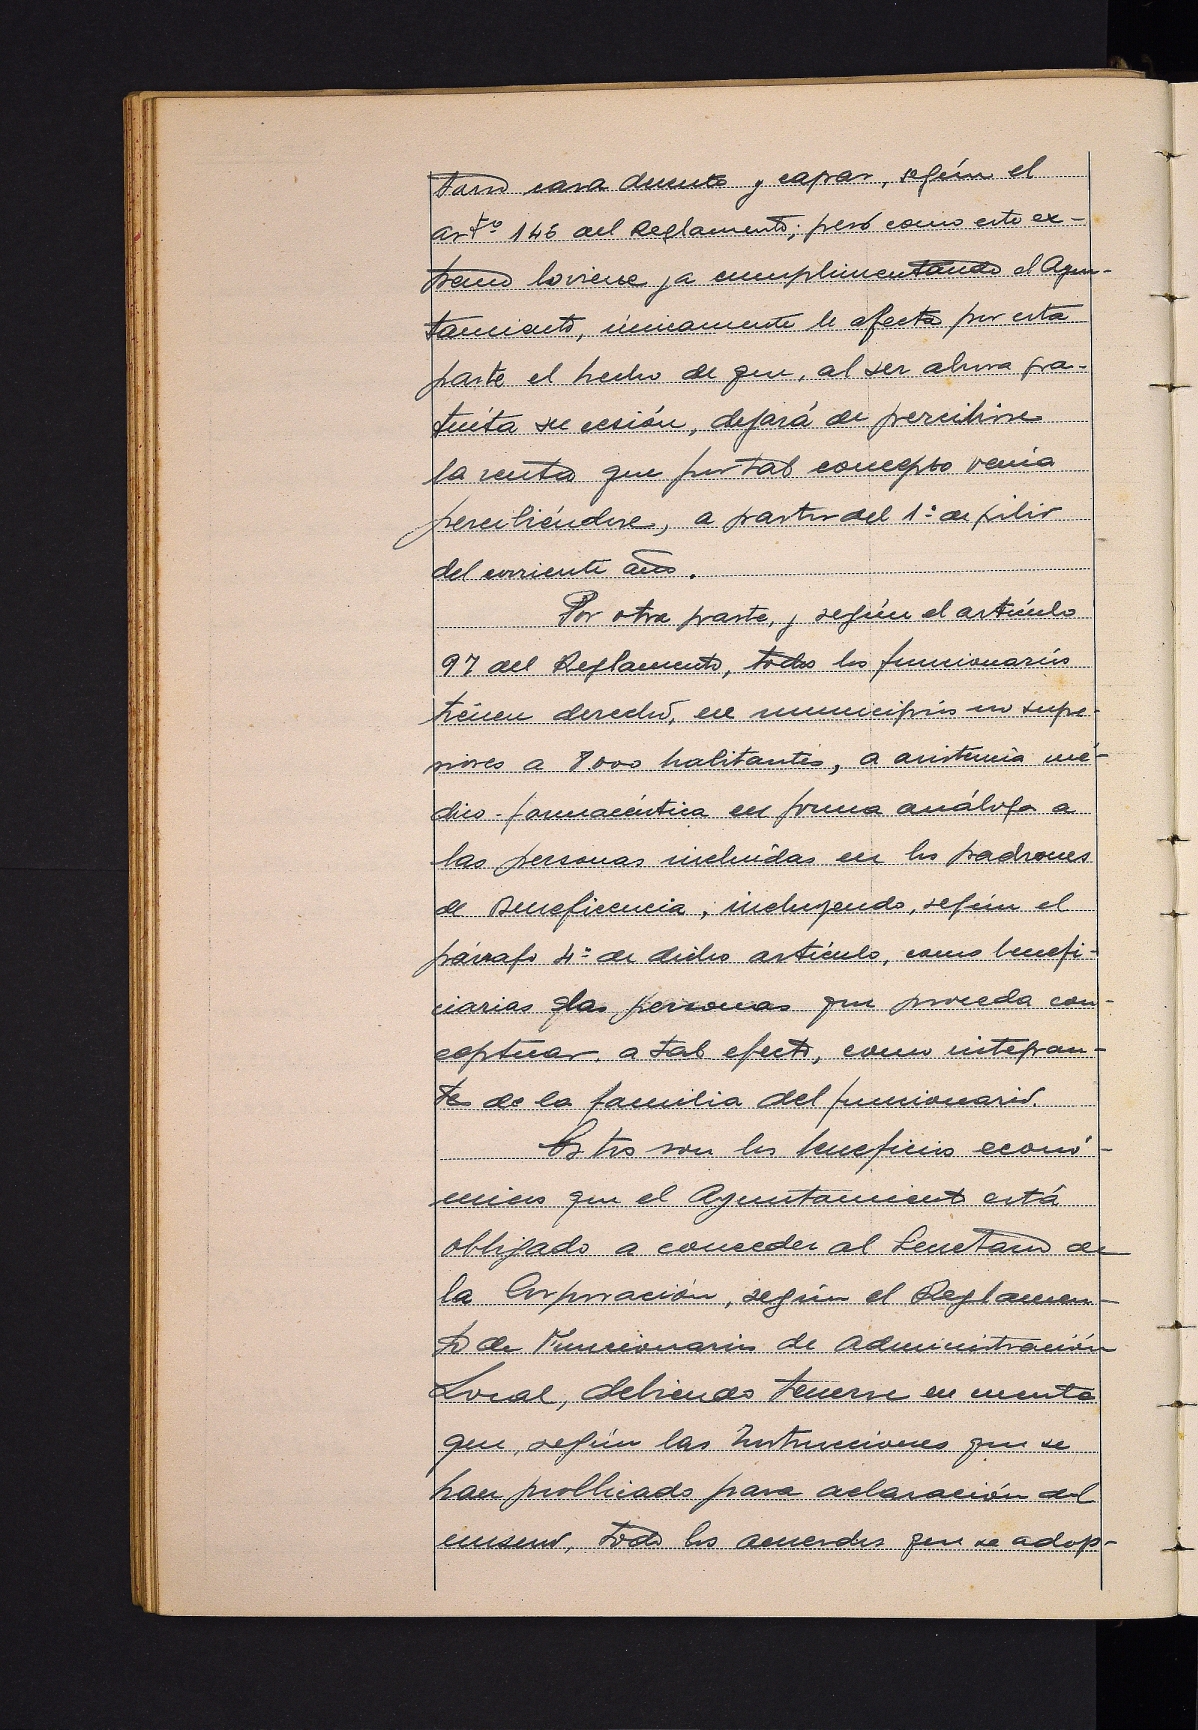 tario casa decente y capaz, según el
artº 146 del Reglamento; pero como este ex-
tremo lo viene ya cumplimentando el Ayun-
tamiento, únicamente le afecta por esta
parte el hecho de que, al ser ahora gra-
tuíta su cesión, dejará de percibirse
la renta que por tal concepto venía
percibiéndose, a partir del 1º de julio
del corriente año.
Por otra parte, y según el artículo
97 del Reglamento, todos los funcionarios
tienen derecho, en municipios no supe-
riores a 8000 habitantes, a asistencia mé-
dico-farmacéutica en forma análoga a
las personas incluídas en los padrones
de Beneficencia, incluyendo, según el
párrafo 4º de dicho artículo, como benefi-
ciarias a las personas que proceda con-
ceptuar, a tal efecto, como integran-
te de la familia del funcionario.
Estos son los beneficios econó-
micos que el Ayuntamiento está
obligado a conceder al Secretario de
la Corporación, según el Reglamen-
to de Funcionarios de Administración
Local, debiendo tenerse en cuenta
que, según las Instrucciones que se
han publicado para aclaración del
mismo, todos los acuerdos que se adop-